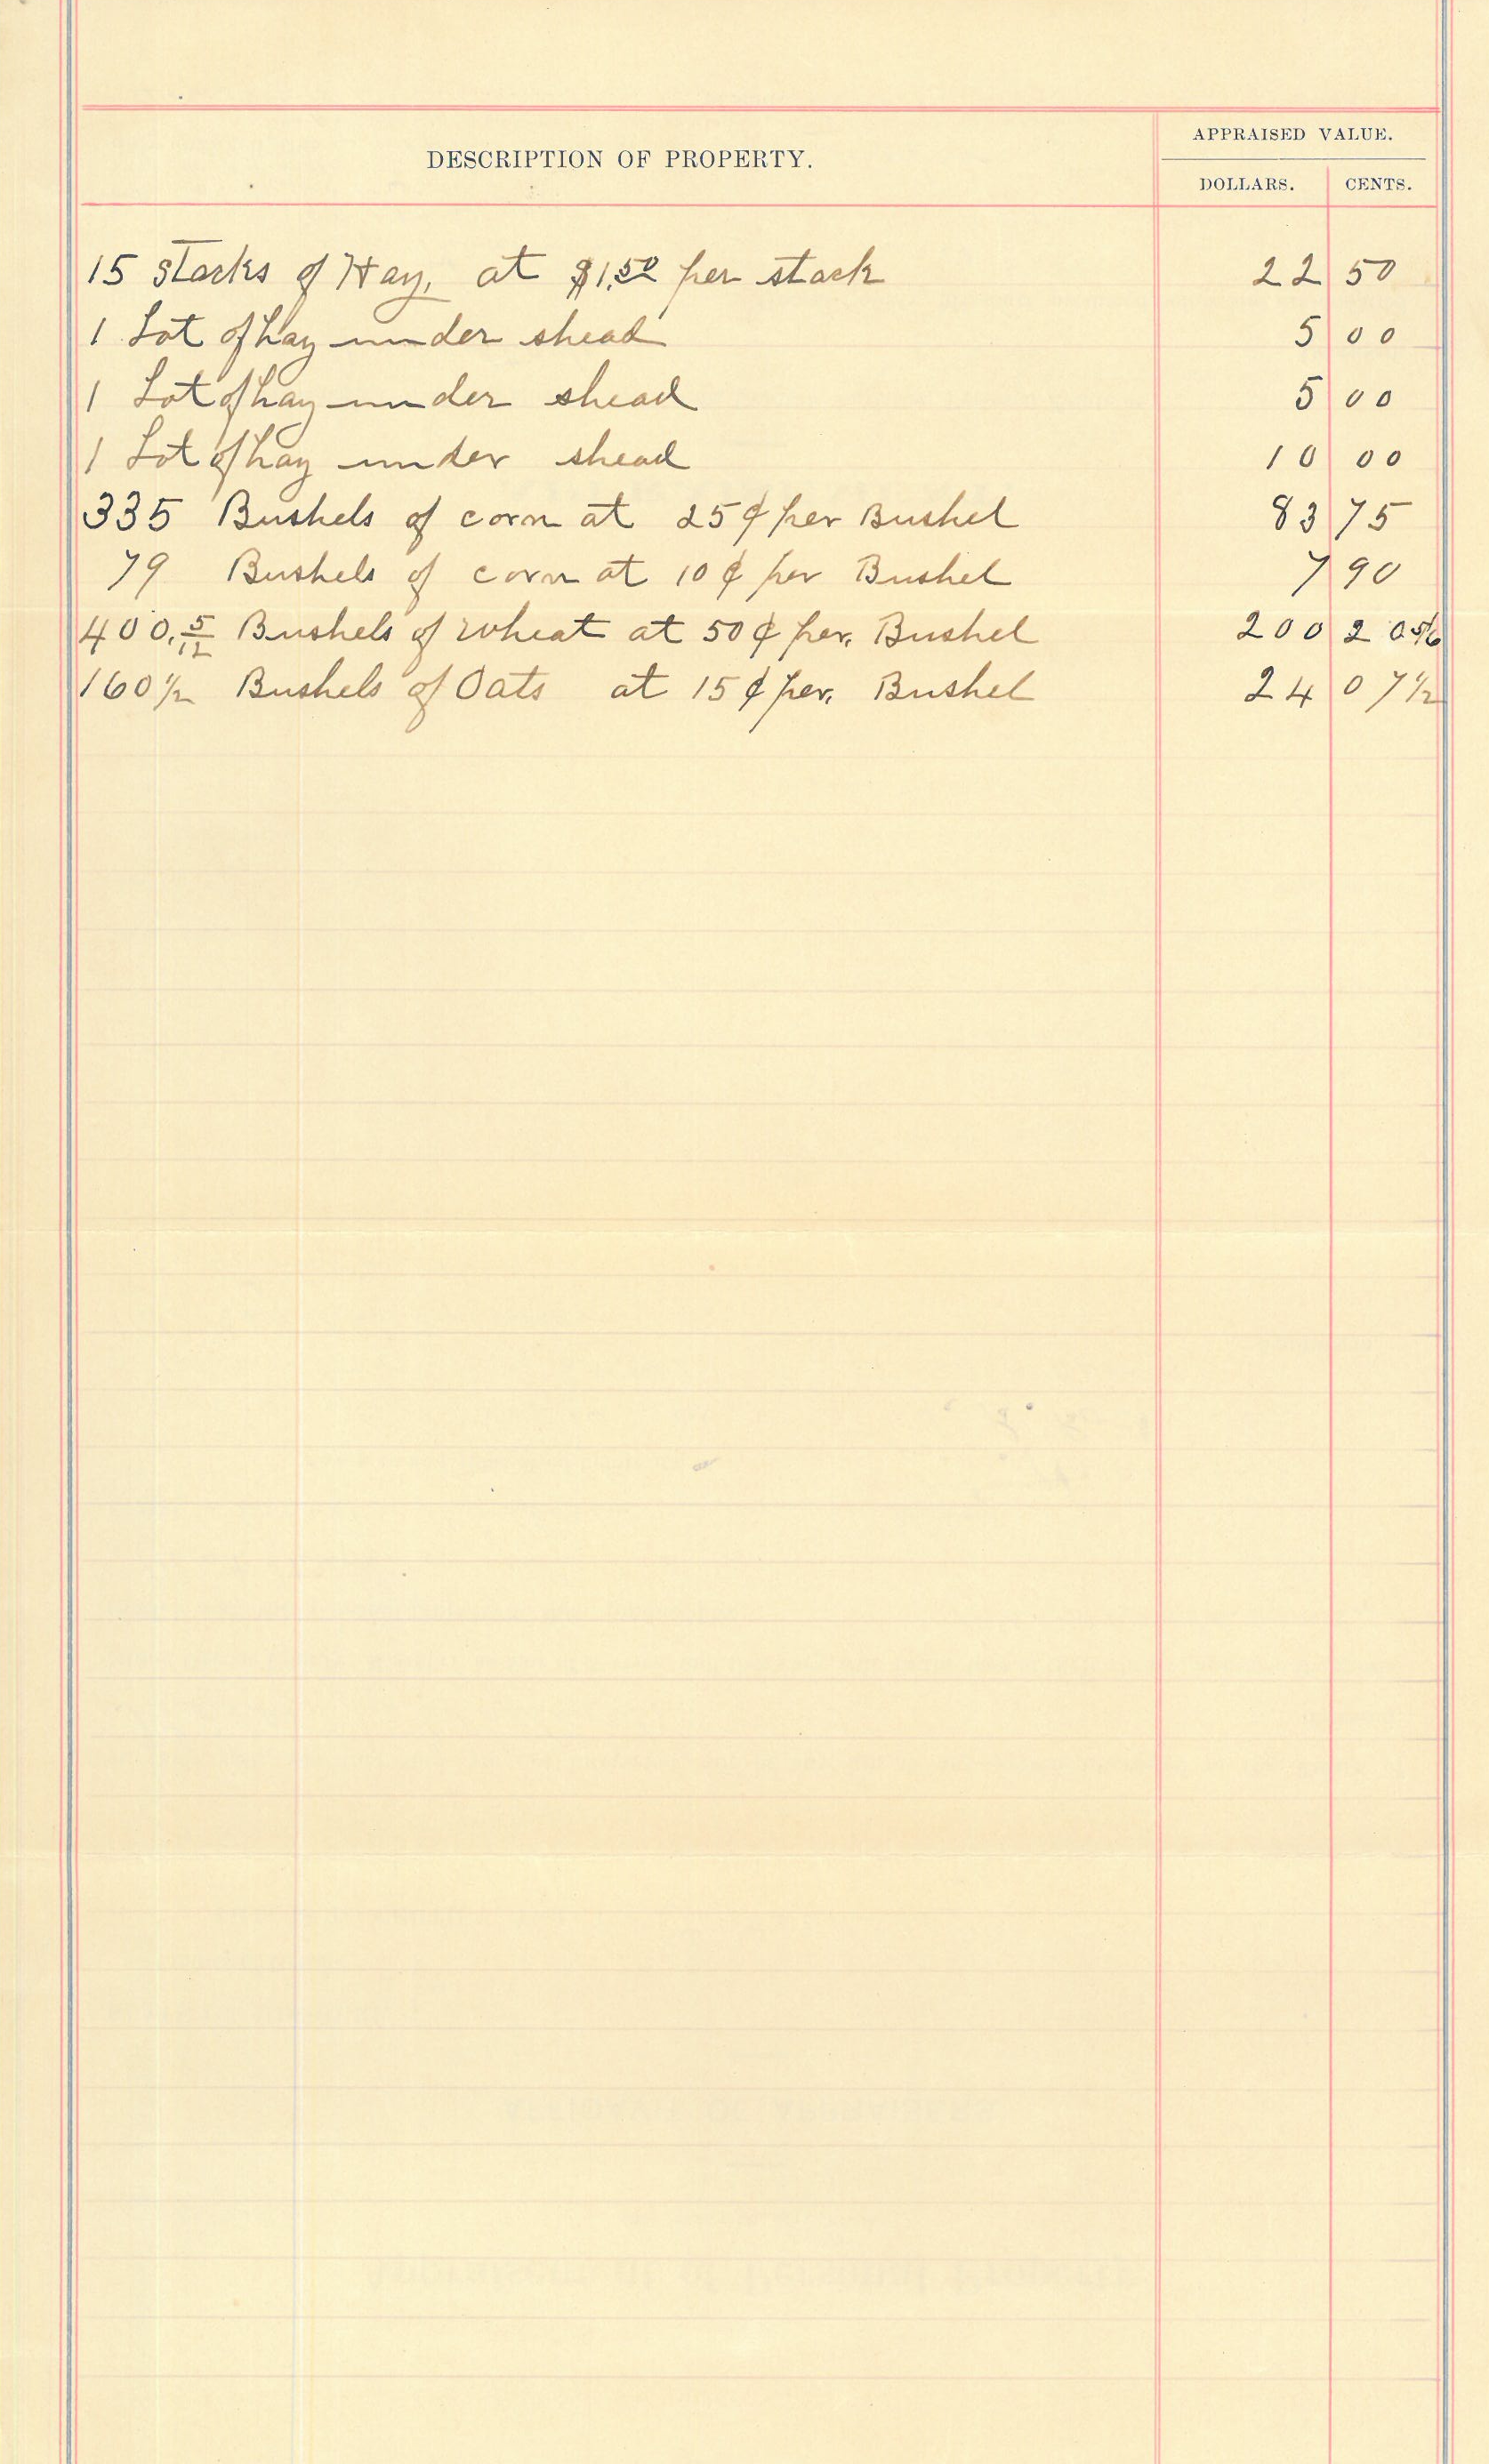 DESCRIPTION OF PROPERTY.
APPRAISED VALUE.
DOLLARS. CENTS.
15 Stacks of Hay, at $1.50 per stack 22 50
1 Lot of hay under shead 5 00
1 Lot of hay under shead 5 00
1 Lot of hay under shead 10 00
335 Bushels of corn at 25¢ per Bushel 83 75
79 Bushels of corn at 10¢ per Bushel 7 90
400. 5/12 Bushels of wheat at 50¢ per. Bushel 200 20 5/6
160 1/2 Bushels of Oats at 15¢ per. Bushel 24 07 1/2